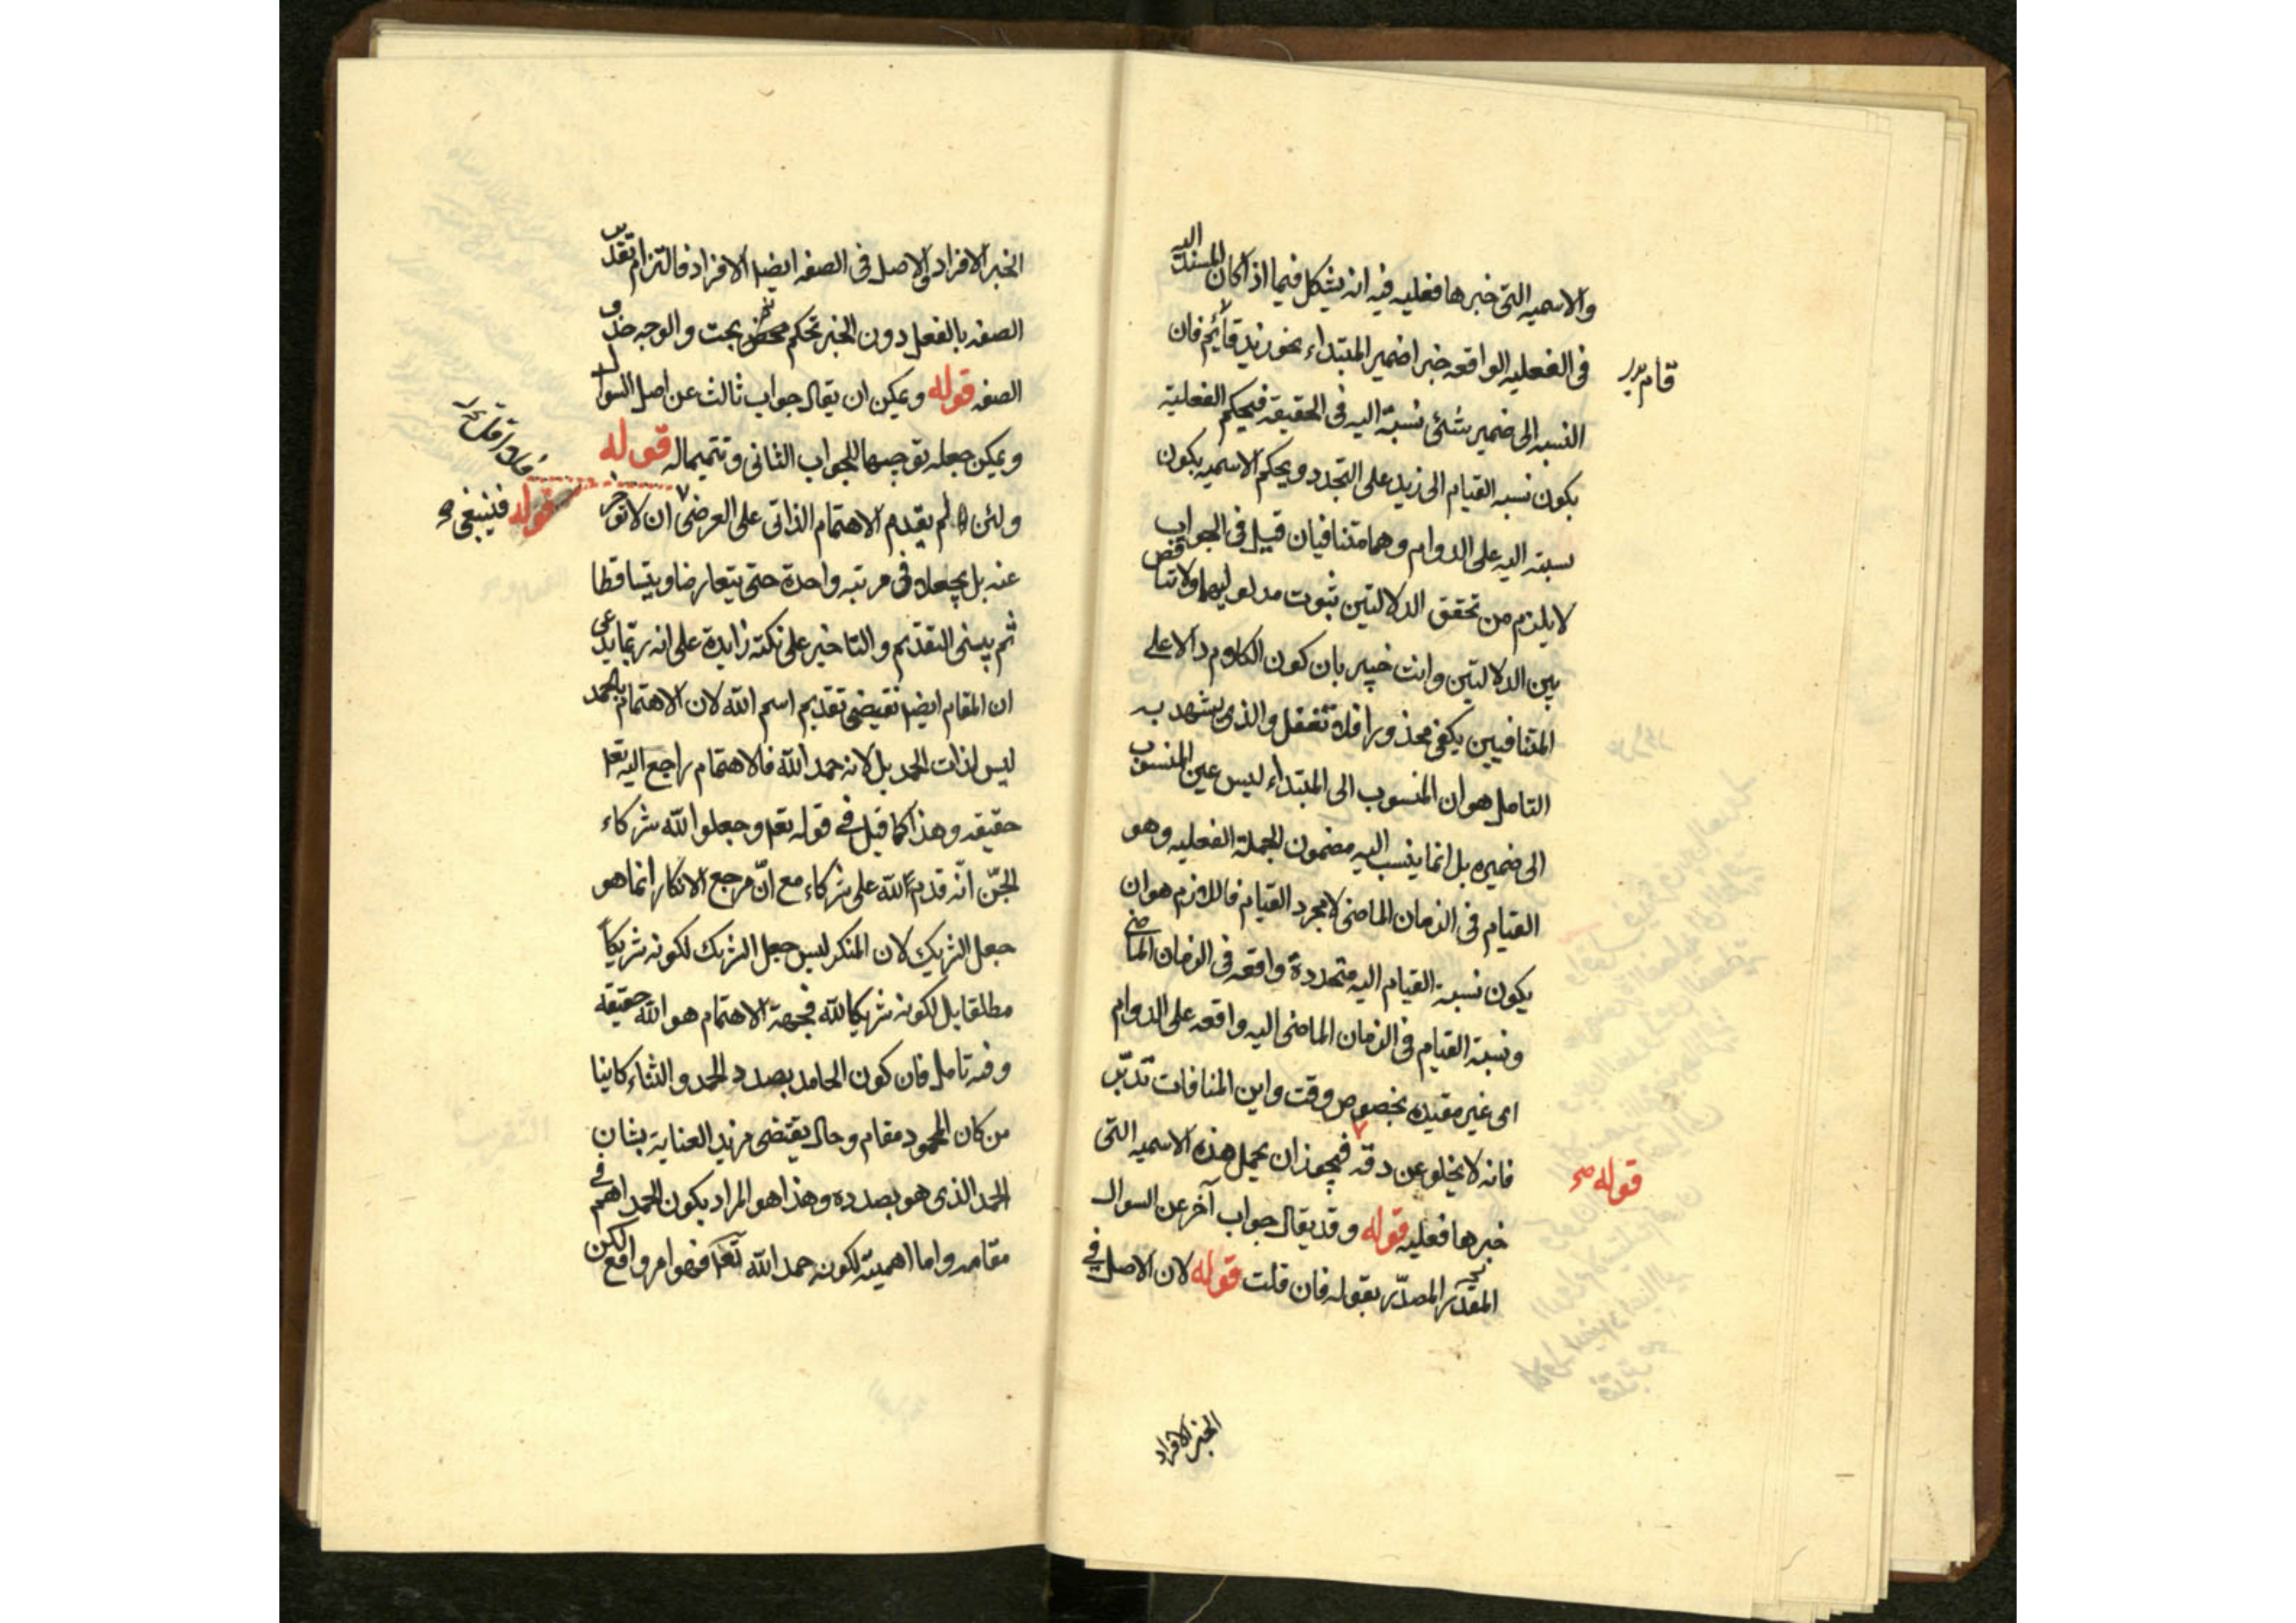 والاسميه التى خبرها فعليه فيه انه يشكل فيما اذا كان المسند اليه
فى الفعليه الواقعه خبرا ضمير المبتداء نحو زيد قائم فان
قام بدل
النسبه الى ضمير شئى نسبة اليه فى الحقيقة فيحكم الفعلية
يكون نسبه القيام الى زيد على التجدد ويحكم الاسميه يكون
نسبته اليه على الدوام وهما متنافيان قيل فى الجواب
لا يلزم من تحقق الدلالتين ثبوت مدلوليهما ولا تناقض
بين الدلالتين وانت خبير بان كون الكلام دالا على
المتنافيين يكفى محذورا فلا تغفل والذى يشهد به
التامل هو ان المنسوب الى المبتداء ليس عين المنسوب
الى ضميره بل انما ينسب اليه مضمون الجملة الفعليه وهو
القيام فى الزمان الماضى لا مجرد القيام فاللازم هو ان
يكون نسبة القيام اليه متجددة واقعه فى الزمان الماضى
ونسبة القيام فى الزمان الماضى اليه واقعه على الدوام
اى غير مقيده بخصوص وقت واين المنافات تدبّر
فانه لا يخلو عن دقه فيجوز ان يحمل هذه الاسميه التى
قوله صح
خبرها فعليه قوله وقد يقال جواب آخر عن السوال
المقدّر المصدّر بقوله فان قلت قوله لان الاصل فى
الخبر الافراد
الخبر الافراد والاصل فى الصفه ايضا الافراد فالتزام تقدير
الصفه بالفعل دون الخبر تحكم محض بحت والوجه حذف
الصفه قوله ويمكن ان يقال جواب ثالث عن اصل السوال
ويمكن جعله توجيها للجواب الثانى وتتميما له قوله
ولئن لم يقدم الاهتمام الذاتى على العرضى ان لا تؤخر
قوله فينبغى
عنه بل يجعلا فى مرتبه واحدة حتى يتعارضا ويتساقطا
ثم يبنى التقديم والتاخير على نكته زايدة على انه ربما يدعى
ان المقام ايضا يقتضى تقديم اسم الله لان الاهتمام بالحمد
ليس لذات الحمد بل لانه حمد الله فالاهتمام راجع اليه تعا
حقيقه وهذا كما قيل فى قوله تعا وجعلوا لله شركاء
الجنّ انّه قدم لله على شركاء مع انّ مرجع الانكار انما هو
جعل الشريك لان المنكر ليس جعل الشريك لكونه شريكاً
مطلقا بل لكونه شريكا لله فجهة الاهتمام هو الله حقيقه
وفيه تامل فان كون الحامد بصدد الحمد والثناء كاينا
من كان المحمود مقام وحال يقتضى مزيد العناية بشان
الحمد الذى هو بصدده وهذا هو المراد بكون الحمد اهم فى
مقامه واما اهميته لكونه حمد الله تعا فهو امر واقع لكن